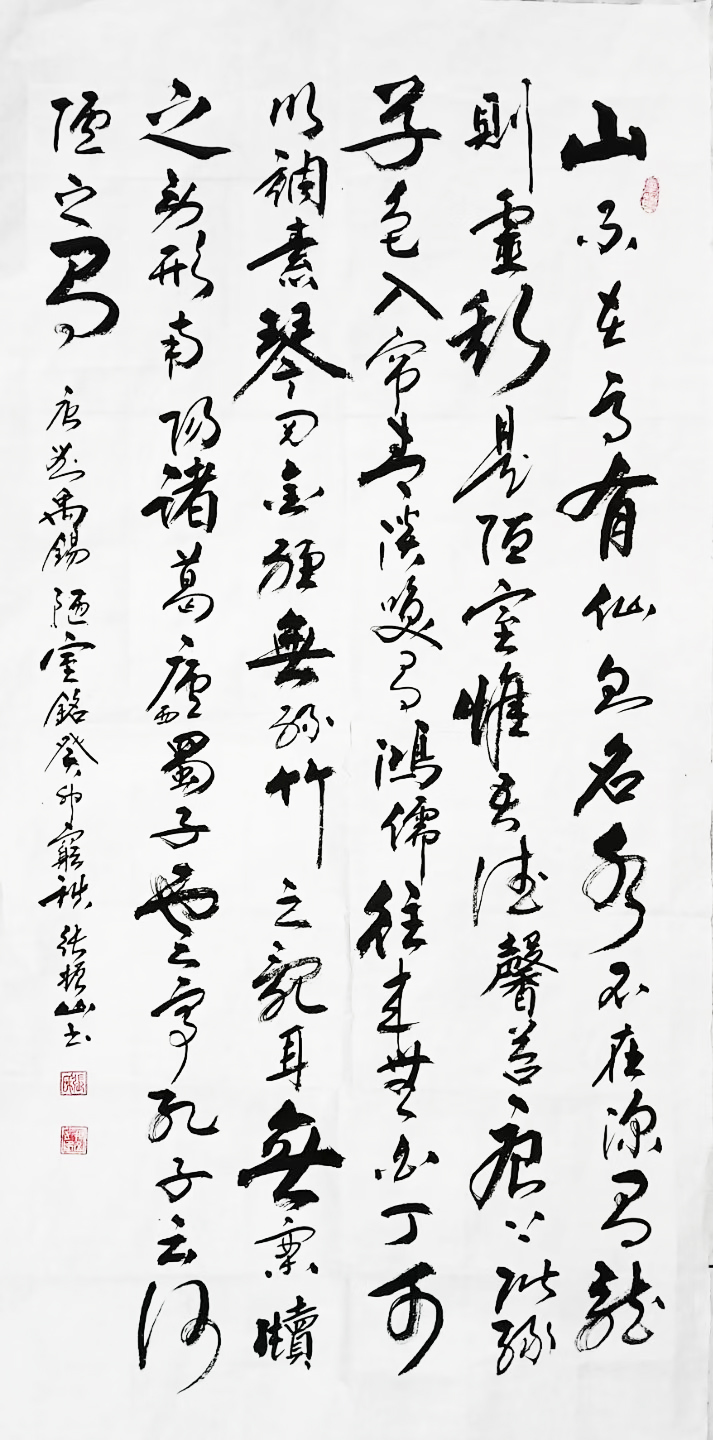 山不在高有仙則名水不在深有龍
則靈斯是陋室惟吾德馨苔痕上階綠
草色入帘青談笑有鴻儒往來無白丁可
以調素琴閱金經無絲竹之亂耳無案牘
之勞形南陽諸葛廬西蜀子雲亭孔子云何
陋之有
唐劉禹錫陋室銘癸卯窮秋張山書